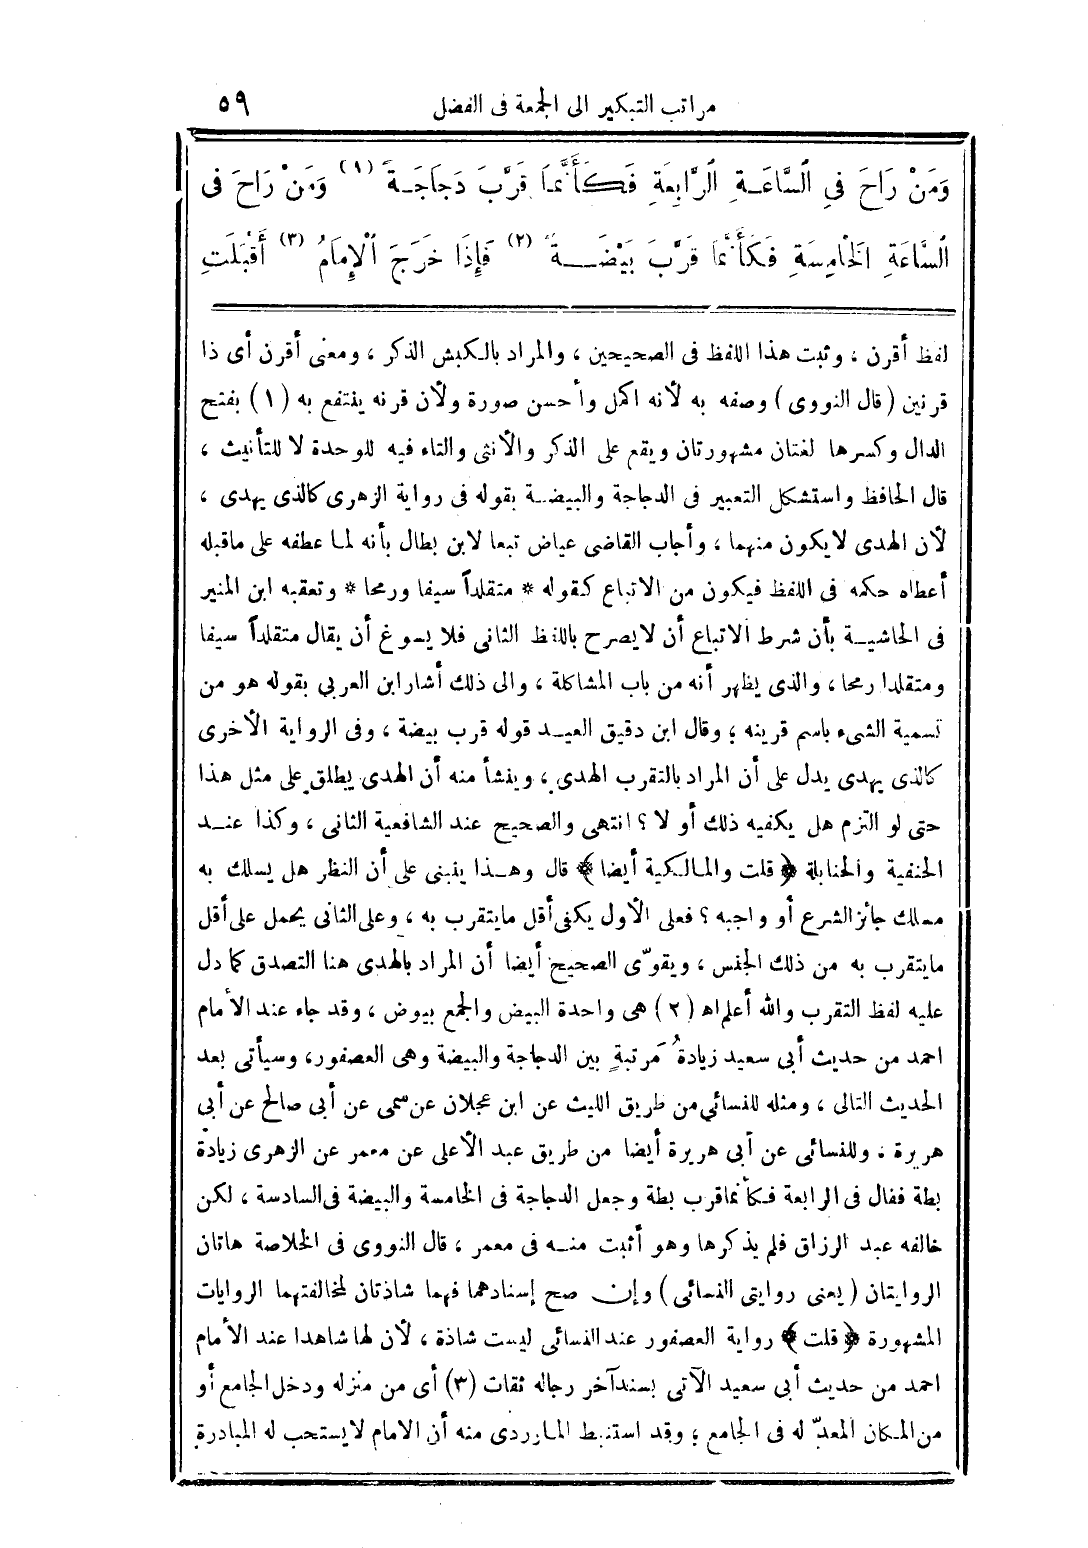 مراتب التبكير الى الجمعة فى الفضل ٥٩
وَمَنْ رَاحَ فِي السَّاعَةِ الرَّابِعَةِ فَكَأَنَّمَا قَرَّبَ دَجَاجَةً (١) وَمَنْ رَاحَ فى
السَّاعَةِ الْخَامِسَةِ فَكَأَنَّمَا قَرَّبَ بَيْضَةً (٢) فَإِذَا خَرَجَ الْإِمَامُ (٣) أَقْبَلَتِ
لفظ أقرن ، وثبت هذا اللفظ فى الصحيحين ، والمراد بالكبش الذكر ، ومعنى أقرن أى ذا
قرنين (قال النووى) وصفه به لأنه اكمل وأحسن صورة ولأن قرنه ينتفع به (١) بفتح
الدال وكسرها لغتان مشهورتان ويقع على الذكر والأنثى والتاء فيه للوحدة لا للتأنيث ،
قال الحافظ واستشكل التعبير فى الدجاجة والبيضة بقوله فى رواية الزهرى كالذى يهدى ،
لأن الهدى لا يكون منهما ، وأجاب القاضى عياض تبعا لابن بطال بأنه لما عطفه على ماقبله
أعطاه حكمه فى اللفظ فيكون من الاتباع كقوله * متقلداً سيفا ورمحا * وتعقبه ابن المنير
فى الحاشية بأن شرط الاتباع أن لايصرح باللفظ الثانى فلا يسوغ أن يقال متقلداً سيفا
ومتقلدا رمحا ، والذى يظهر أنه من باب المشاكلة ، والى ذلك أشار ابن العربي بقوله هو من
تسمية الشىء باسم قرينه ؛ وقال ابن دقيق العيد قوله قرب بيضة ، وفى الرواية الأخرى
كالذى يهدى يدل على أن المراد بالتقرب الهدى ، وينشأ منه أن الهدى يطلق على مثل هذا
حتى لو التزم هل يكفيه ذلك أو لا ؟ انتهى والصحيح عند الشافعية الثانى ، وكذا عند
الحنفية والحنابلة ﴿قلت والمالكية أيضا﴾ قال وهذا ينبنى على أن النظر هل يسلك به
مسلك جائز الشرع أو واجبه ؟ فعلى الأول يكفى أقل مايتقرب به ، وعلى الثانى يحمل على أقل
مايتقرب به من ذلك الجنس ، ويقوّى الصحيح أيضا أن المراد بالهدى هنا التصدق كما دل
عليه لفظ التقرب والله أعلم اه (٢) هى واحدة البيض والجمع بيوض ، وقد جاء عند الأمام
احمد من حديث أبى سعيد زيادةُ مَرتبةٍ بين الدجاجة والبيضة وهى العصفور، وسيأتى بعد
الحديث التالى ، ومثله للنسائي من طريق الليث عن ابن عجلان عن سمى عن أبى صالح عن أبى
هريرة ، وللنسائى عن أبى هريرة أيضا من طريق عبد الأعلى عن معمر عن الزهرى زيادة
بطة فقال فى الرابعة فكأنماقرب بطة وجعل الدجاجة فى الخامسة والبيضة فى السادسة ، لكن
خالفه عبد الرزاق فلم يذكرها وهو أثبت منه فى معمر ، قال النووى فى الخلاصة هاتان
الروايتان (يعنى روايتى النسائى) وإن صح إسنادهما فهما شاذتان لمخالفتهما الروايات
المشهورة ﴿قلت﴾ رواية العصفور عند النسائى ليست شاذة ، لأن لها شاهدا عند الأمام
احمد من حديث أبى سعيد الآتى بسند آخر رجاله ثقات (٣) أى من منزله ودخل الجامع أو
من المكان المعدّ له فى الجامع ؛ وقد استنبط الماوردى منه أن الامام لا يستحب له المبادرة